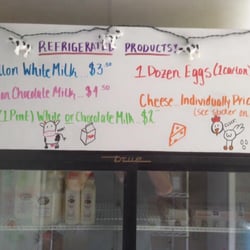 REFRIGERATED PRODUCTS:
llon White Milk... $3.50
on Chocolate Milk... $4.50
(1 Pint) White or Chocolate Milk $2
1 Dozen Eggs (1 carton)
Cheese... Individually Pric
(see sticker on
True